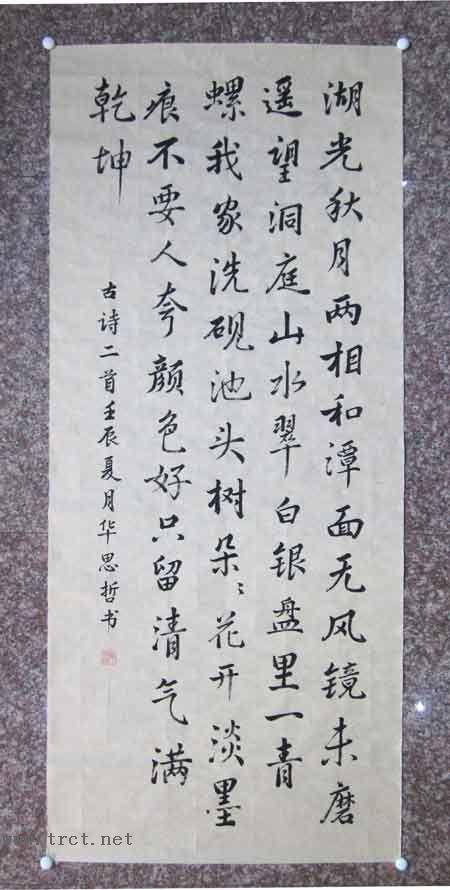 湖光秋月两相和潭面无风镜未磨
遥望洞庭山水翠白银盘里一青
螺我家洗砚池头树朵〻花开淡墨
痕不要人夸颜色好只留清气满
乾坤
古诗二首壬辰夏月华思哲书
www.trct.net